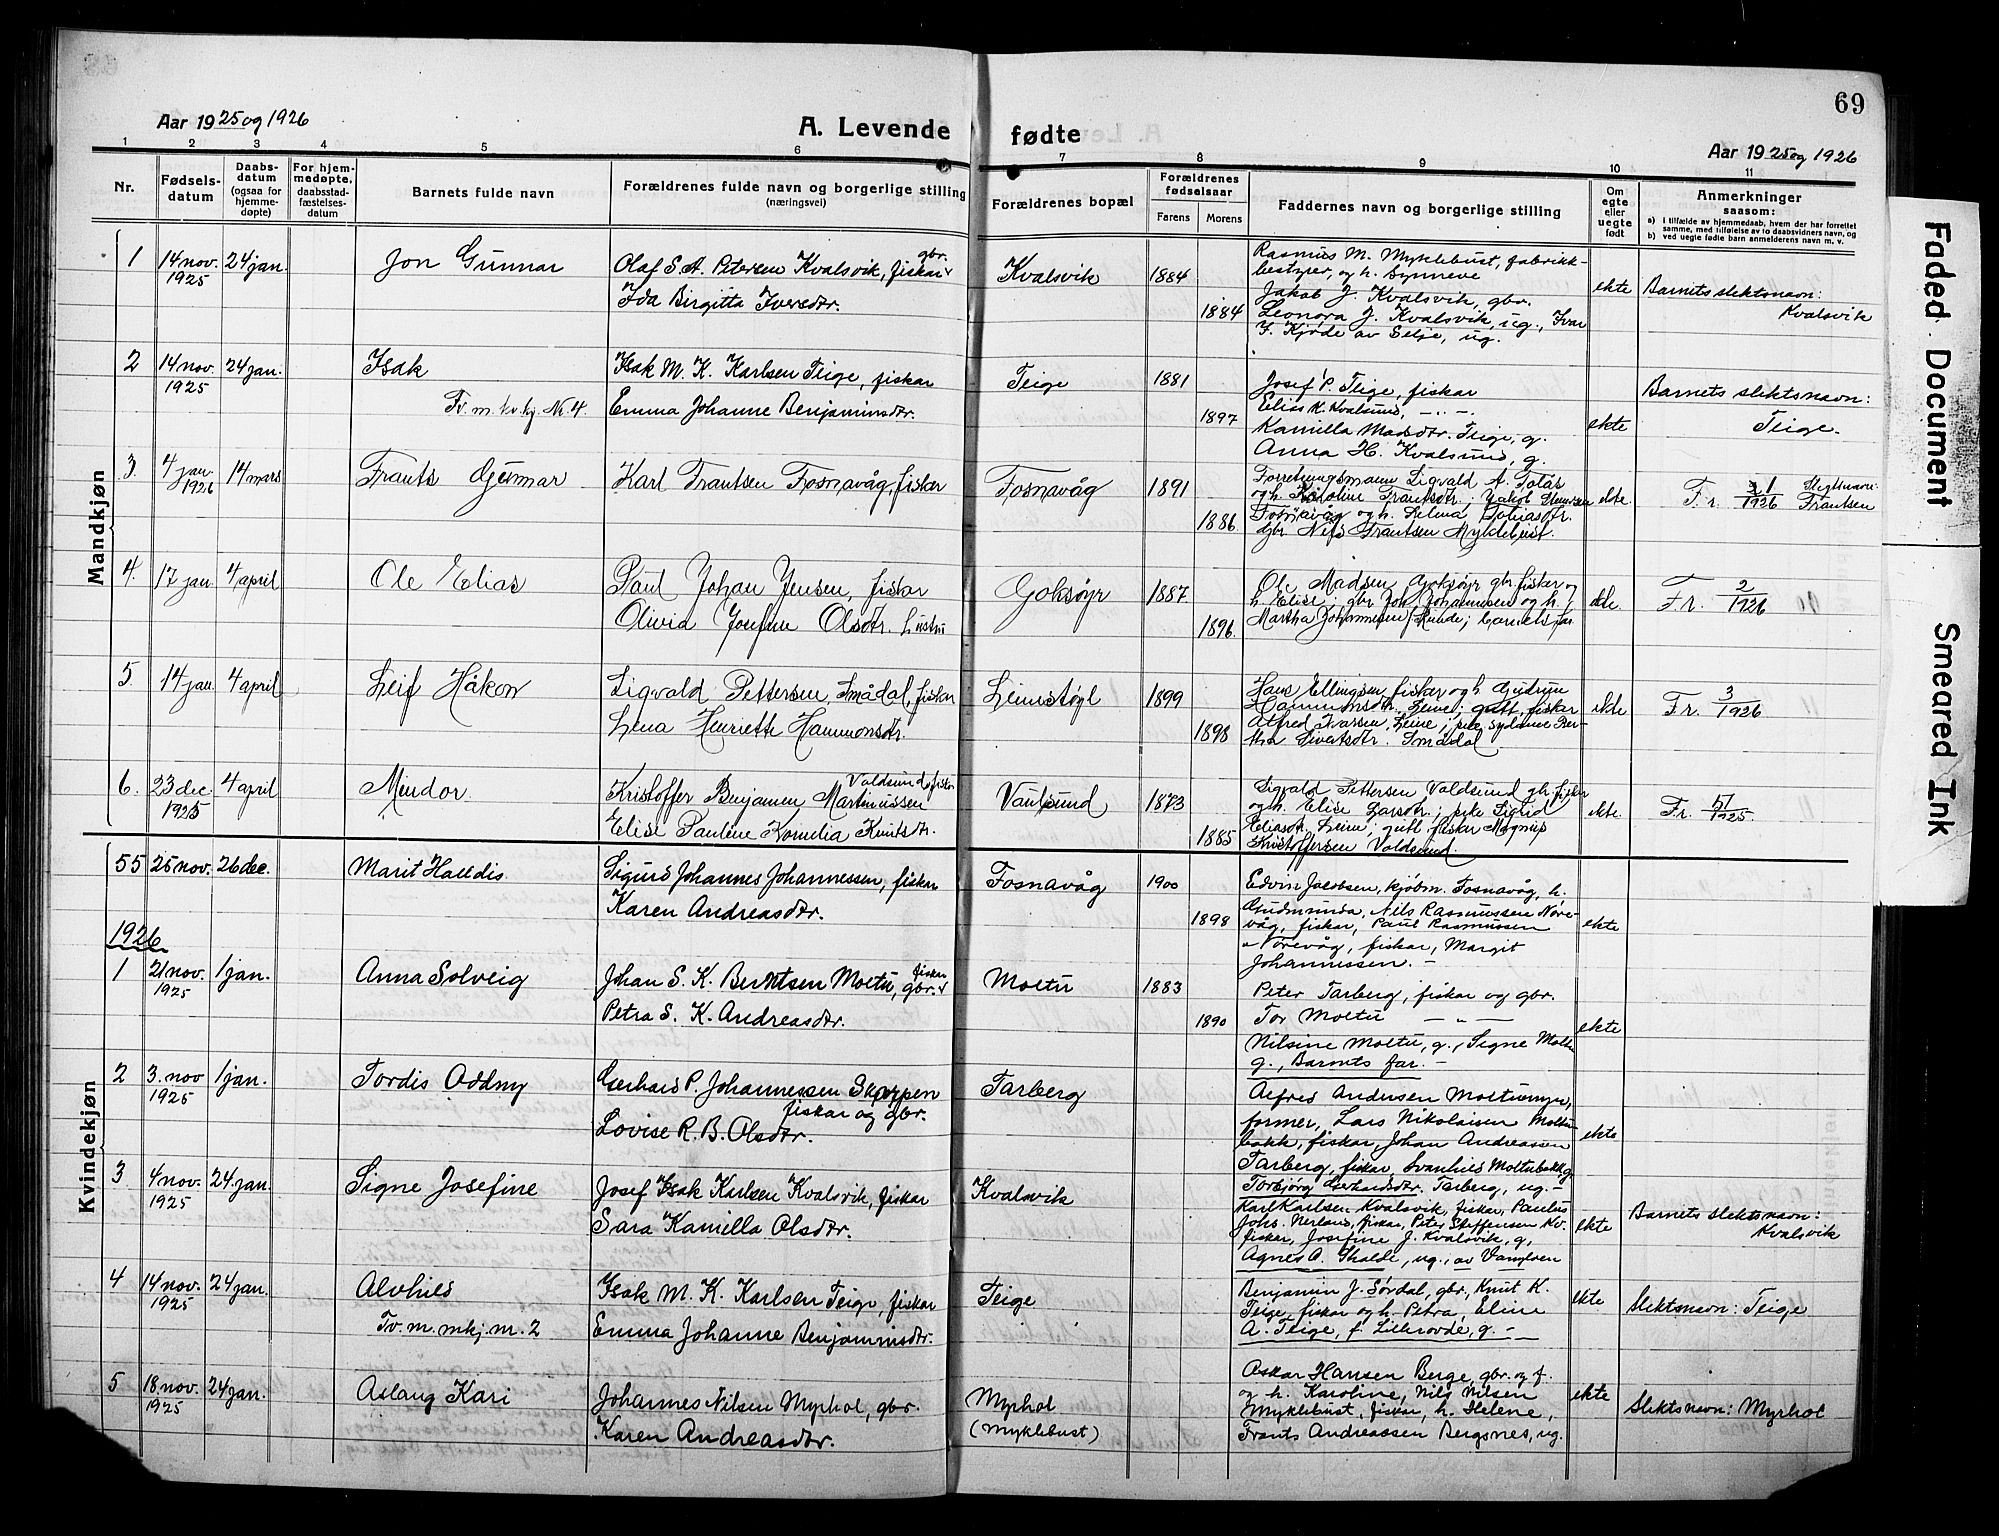 69
Aar 1925 og 1926
A. Levende fødte
Aar 1925 og 1926
1 2 3 4 5 6 7 8 9 10 11
Nr.
Fødsels-
datum
Daabs-
datum
(ogsaa for
hjemme-
døpte)
For hjem-
medøpte,
daabsstad-
fæstelses-
datum
Barnets fulde navn
Forældrenes fulde navn og borgerlige stilling
(næringsvei)
Forældrenes bopæl
Forældrenes
fødselsaar
Farens Morens
Faddernes navn og borgerlige stilling
Om
egte
eller
uegte
født
Anmerkninger
saasom:
a) i tilfælde av hjemmedaab, hvem der har forrettet
samme, med tilføielse av to daabsvidners navn, og
b) ved uegte fødte barn anmelderens navn m. v.
Mandkjøn
1 14 nov. 24 jan. Jon Gunnar Olaf S. A. Petersen Kvalsvik, fiskar gbr. Kvalsvik 1884 Rasmus M. Myklebust, fabrikk-
1925 Ida Birgitta Iversdtr. 1884 bestyrer, og h. Synneve
Jakob J. Kvalsvik, gbr. ekte Barnets slektsnavn:
Leonora J. Kvalsvik, ug., Ivar Kvalsvik
I. Kjøde av Selje, ug.
2 14 nov. 24 jan. Isak Isak M. K. Karlsen Teige, fiskar Teige 1881 Josef P. Teige, fiskar Barnets slektsnavn:
1925 Tv. m. kv.kj. Nr. 4 Emma Johanne Benjaminsdtr. 1897 Elias K. Kvalsund, - " -
Kamilla Madsdtr. Teige, g. ekte Teige.
Anna H. Kvalsund, g.
3. 4 jan. 14 mars Frants Gunnar Karl Frantsen Fosnavåg, fiskar Fosnavåg 1891 Forretningsmann Sigvald A. Fotås
1926 1886 og h. Karoline Frantsdtr.; Jakob ekte. Fr. 1/1926 Slegtsnavn: Frantsen
Fosnavåg og h. Selma Tobiasdtr.
Gbr Nils Frantsen Myklebust.
4. 17 jan. 4 april Ole Elias Paul Johan Jensen, fiskar Goksøyr 1887 Ole Madsen Goksøyr gbr. fiskar og
Olivia Josefine Olsdtr. 1896. h. Elise; gbr Johannessen og h. ekte. Fr. 2/1926
Martha Johannesen Runde; barnets far
5. 14 jan. 4 april Leif Håkon Sigvald Pettersen, Smådal, fiskar Leinstøyl 1899 Hans Ellingsen, fiskar og h. Gudrun
Lena Henriette Hammonsdtr. 1898 Hammonsdtr. Leine; gutt, fiskar ekte Fr. 3/1926
Alfred Ivarsen, Leine; pike Ber-
tha Sivertsdtr. Smådal
6. 23 dec. 4 april Mindor Kristoffer Benjamin Martinussen Voldsund, fiskar Vaulsund 1873 Sigvald Pettersen Voldsund gbr. fiskar
1925 Elise Pauline Kornelia Knutsdtr. 1885 og h. Elise Larsdtr.; pike Sigrid ekte. Fr. 51/1925
Eliasdtr. Leine; gutt, fiskar Magnus
Kristoffersen Voldsund.
Kvindekjøn
55 25 nov. 26 dec. Marit Halldis Sigurd Johannes Johannessen, fiskar Fosnavåg 1900 Edvin Jacobsen, kjøbm. Fosnavåg, h.
Karen Andreasdtr. 1898 Gudmunda, Nils Rasmussen Nøre- ekte
våg, fiskar, Paul Rasmussen
Nørevåg, fiskar, Margit
Johannessen. -
1926
1 21 nov. 1 jan. Anna Solveig Johan S. K. Berntsen Moltu, gbr. fiskar Moltu 1883 Peter Tarberg, fiskar og gbr.
1925 Petra S. K. Andreasdtr. 1890 Tor Moltu - " - ekte
Nilsine Moltu, g., Signe Moltu
g., Barnets far. -
2 3. nov 1 jan. Tordis Oddny Gerhard P. Johannessen Skorpen Tarberg Alfred Andersen Moltumyr,
1925 fiskar og gbr. former, Lars Nikolaisen Moltu-
Lovise R. B. Olsdtr. bakk, fiskar, Johan Andreassen ekte
Tarberg, fiskar, Svanhild Moltubakk g
Torbjørg Gerhardsdtr. Tarberg, ug. -
3 4 nov. 24 jan. Signe Josefine Josef Isak Karlsen Kvalsvik, fiskar Kvalsvik Karl Karlsen Kvalsvik, fiskar, Paulus
1925 Sara Kamilla Olsdtr. Johs. Nerland, fiskar, Peter Steffensen Kv. ekte Barnets slektsnavn:
fiskar, Josefine J. Kvalsvik, g, Kvalsvik
Agnes O. Skalde, ug., av Vanylven
4 14 nov. 24 jan. Alvhild Isak M. K. Karlsen Teige, fiskar Teige Benjamin J. Sørdal, gbr, Knut K. ekte
1925 Tv. m. mkj. nr. 2 Emma Johanne Benjaminsdtr. Teige, fiskar og h. Petra, Eline Slektsnavn: Teige
A. Teige, f. Lillerovde, g. -
5 18. nov. 24 jan. Aslaug Kari Johannes Nilsen Myrhol, gbr. Myrhol Oskar Hansen Berge, gbr. og f.
1925 Karen Andreasdtr. (Myklebust) og h. Karoline, Nils Nilsen ekte Slektsnavn: Myrhol
Myklebust, fiskar, h. Helene,
Frants Andreassen Bergsnes, ug.
Faded Document
Smeared Ink